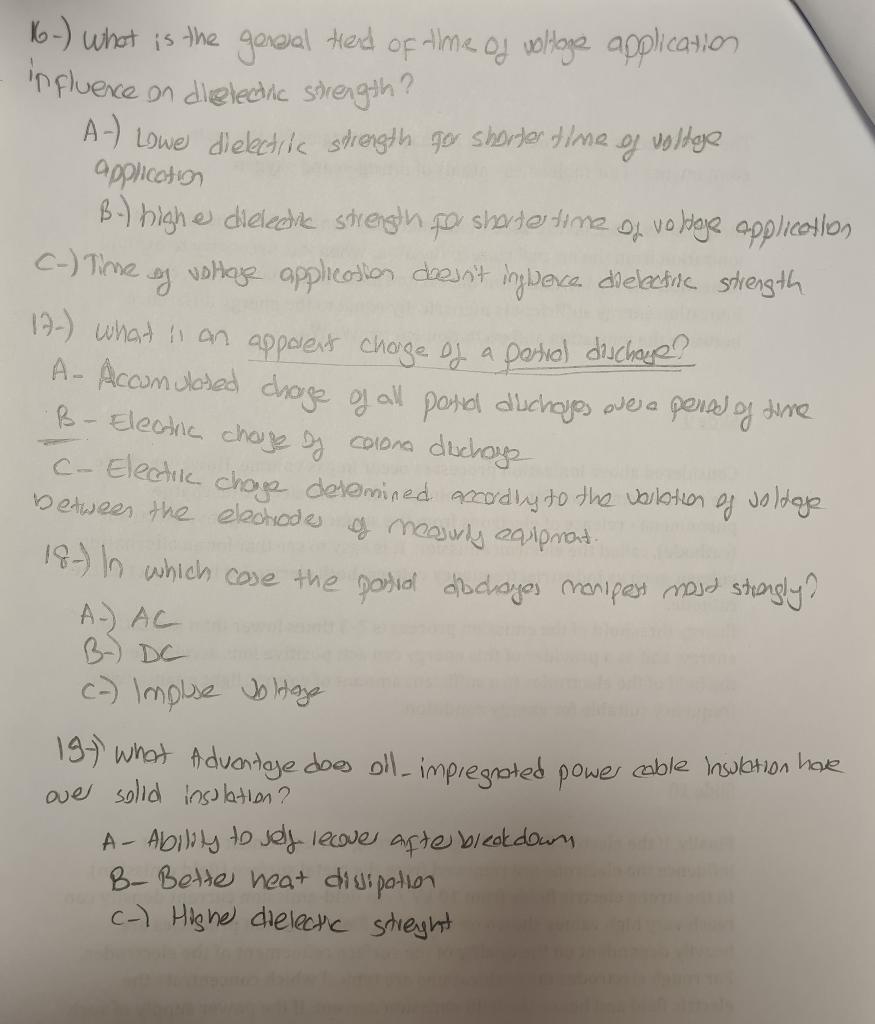 16-) What is the general trend of time of voltage application
influence on dielectric strength?
A-) Lower dielectric strength for shorter time of voltage
application
B-) higher dielectric strength for shorter time of voltage application
C-) Time of voltage application doesn't influence dielectric strength
17-) What is an apparent charge of a partial discharge?
A- Accumulated charge of all partial discharges over a period of time
B- Electric charge of corona discharge
C- Electric charge determined accordly to the variation of voltage
between the electrodes of measurly equipment.
18-) In which case the partial discharges manifest most strongly?
A-) AC
B-) DC
C-) Impulse voltage
19-) What Advantage does oil-impregnated power cable insulation have
over solid insulation?
A- Ability to self recover after breakdown
B- Better heat dissipation
C-) Higher dielectric streight